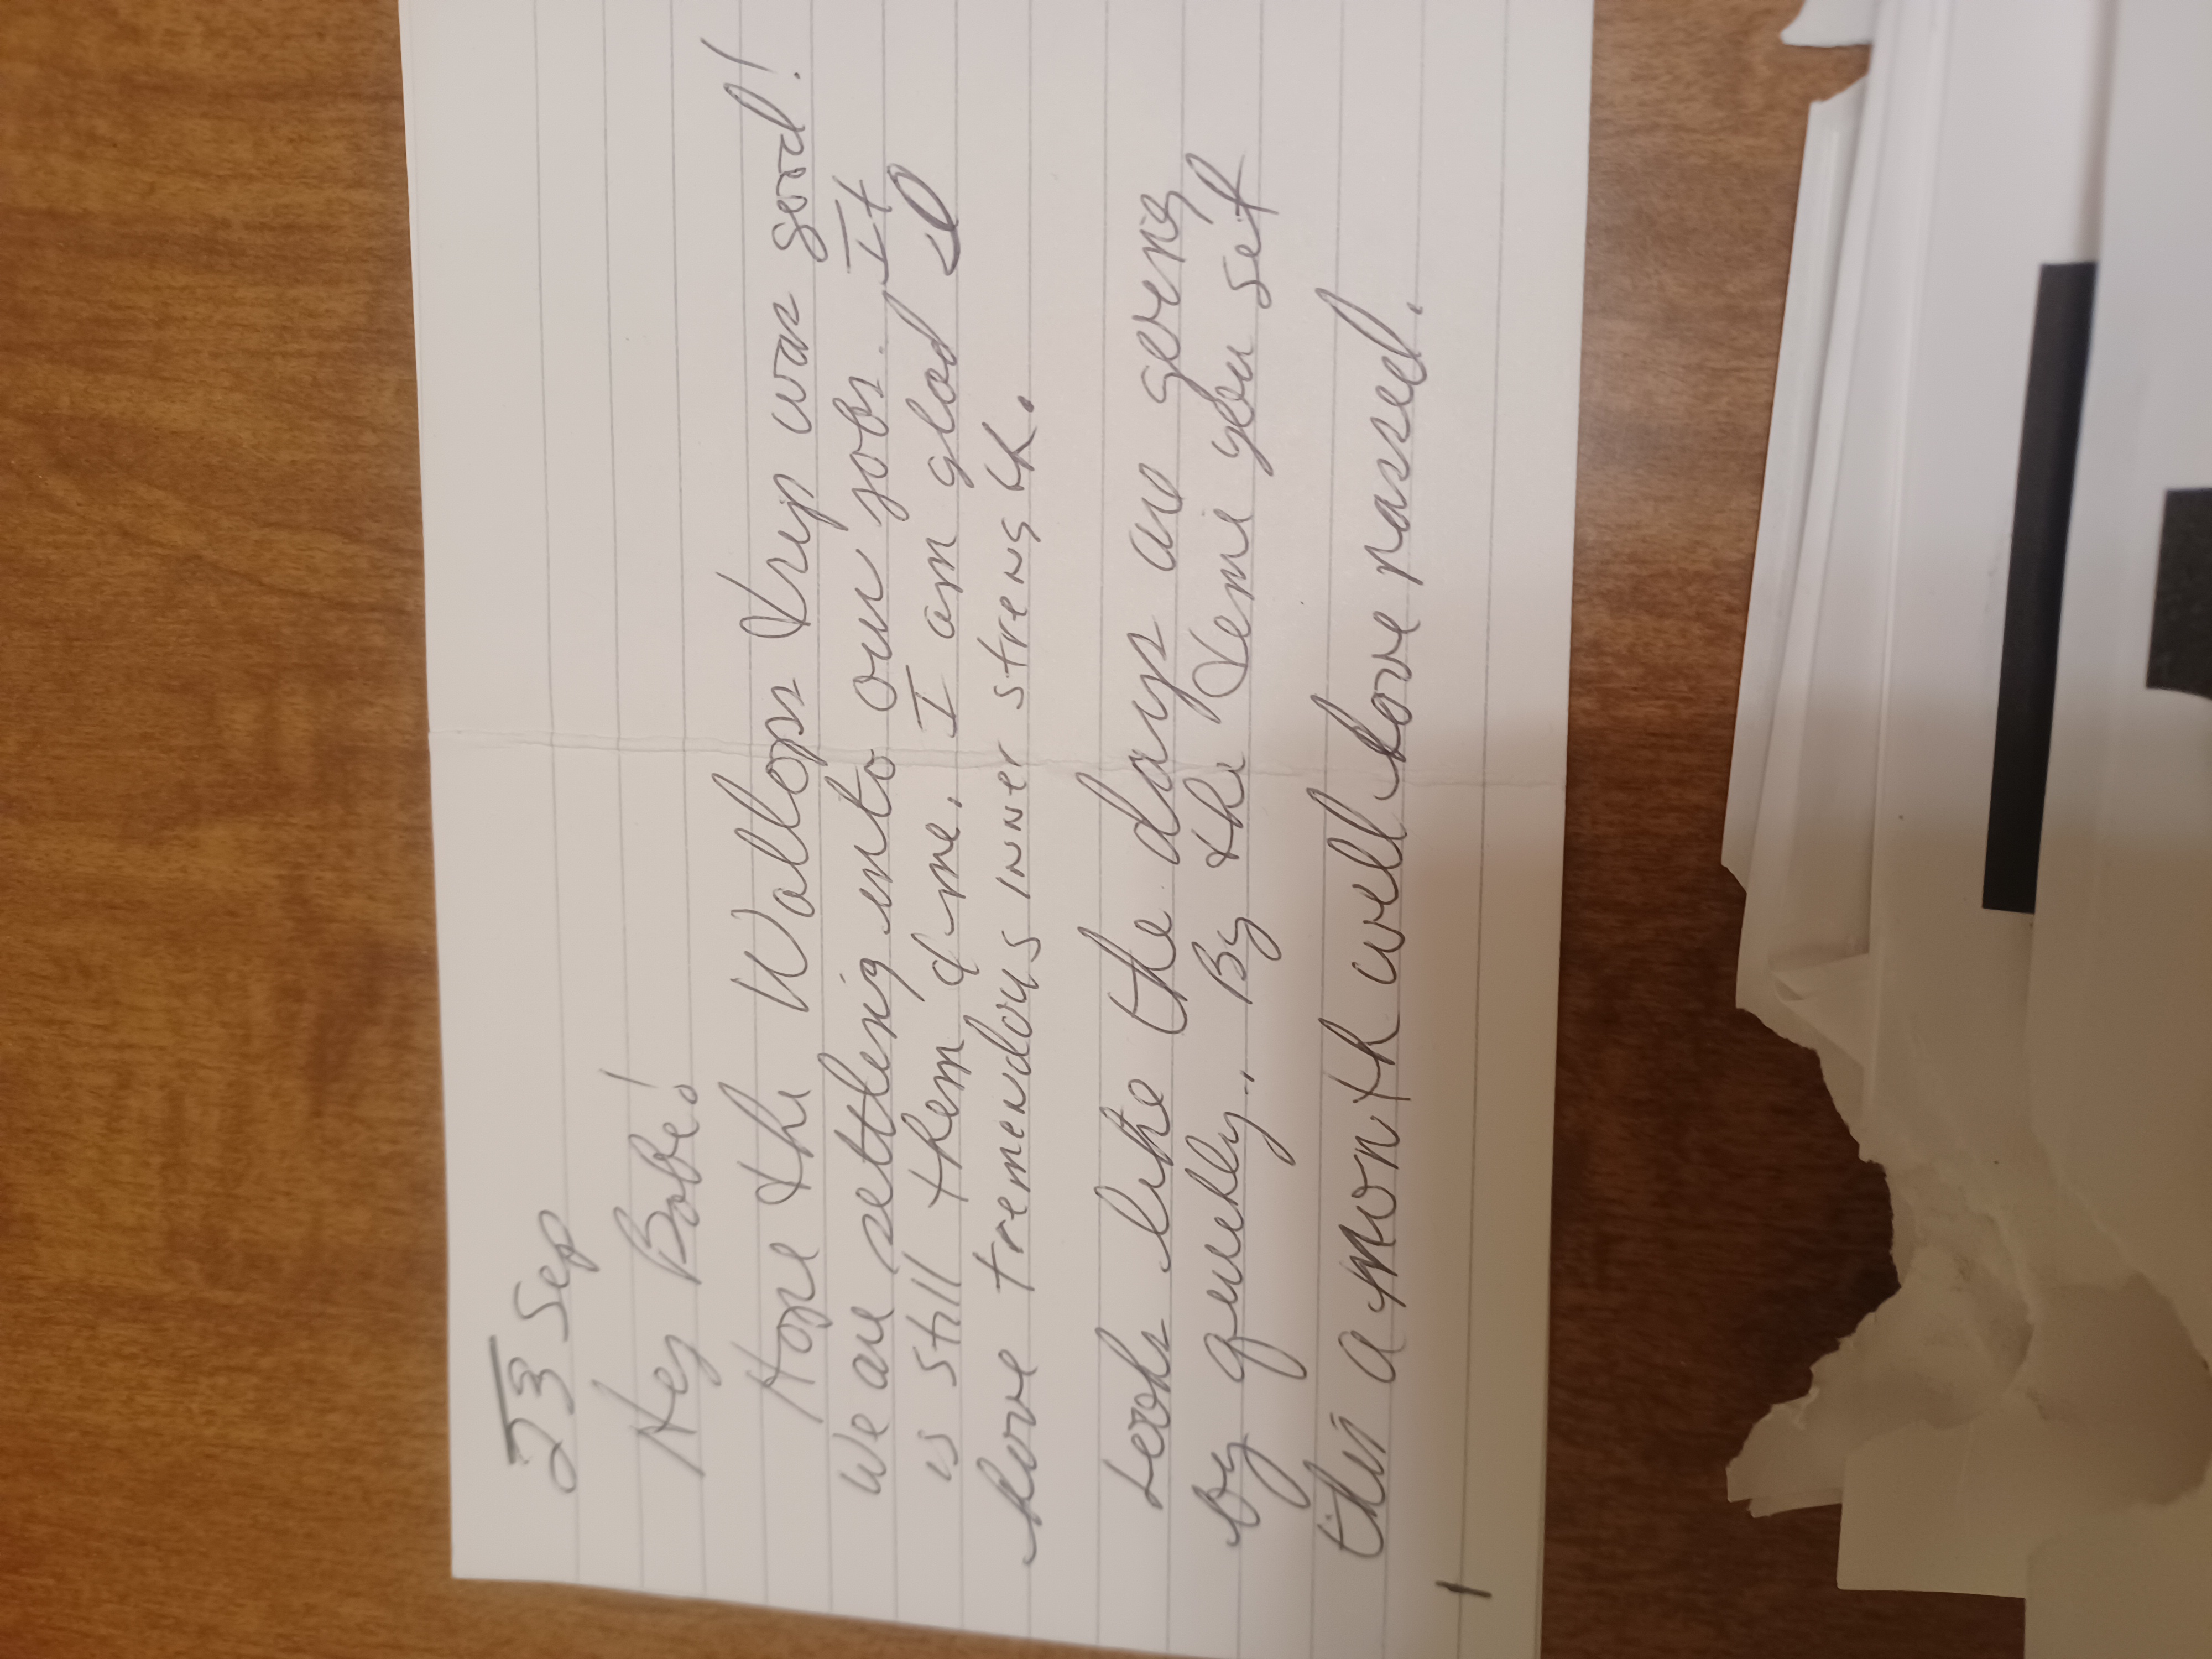 23 Sep
Hey Babe!
Hope the Wallops trip was good!
We are settling into our jobs. It
is still them & me. I am glad I
have tremendous inner strength.
Looks like the days are going
by quickly. By the time you get
this a month will have passed.
1